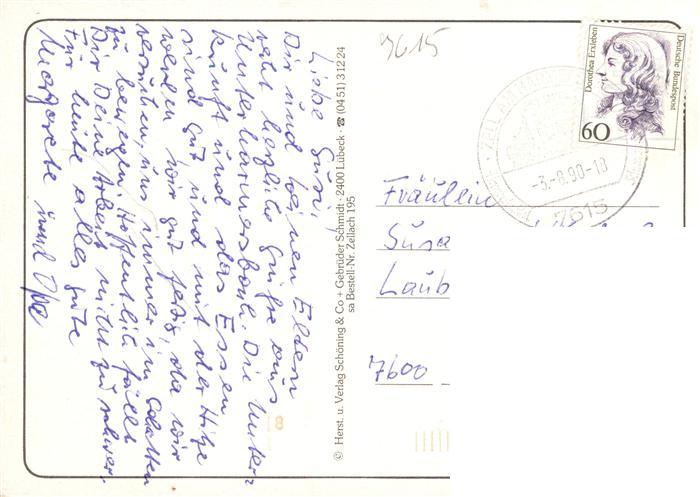 Liebe Susi,
Dir und deinen Eltern
recht herzliche Grüße aus
Unterharmersbach. Die Unter-
kunft und das Essen
sind gut und mit der Hitze
werden wir gut fertig, da wir
versuchen, uns immer im Schatten
zu bewegen. Hoffentlich fällt
Dir Deine Arbeit nicht zu schwer.
Für heute alles Gute
Margarete und Opa
© Herst. u. Verlag Schöning & Co + Gebrüder Schmidt · 2400 Lübeck · ☎ (04 51) 3 12 24
sa Bestell-Nr. Zellach 195
7615
Dorothea Erxleben
Deutsche Bundespost
60
ZELL AM
-3.-8.90-18
7615
Fräulein
Susa
Laub
7600
8